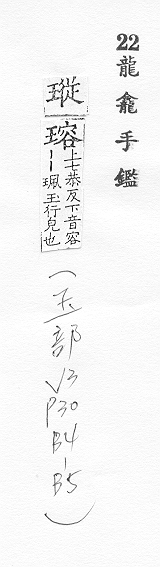 22龍龕手鑑
瑽瑢上七恭反下音容
｜｜珮玉行皃也
(玉部V3P30B4-B5)